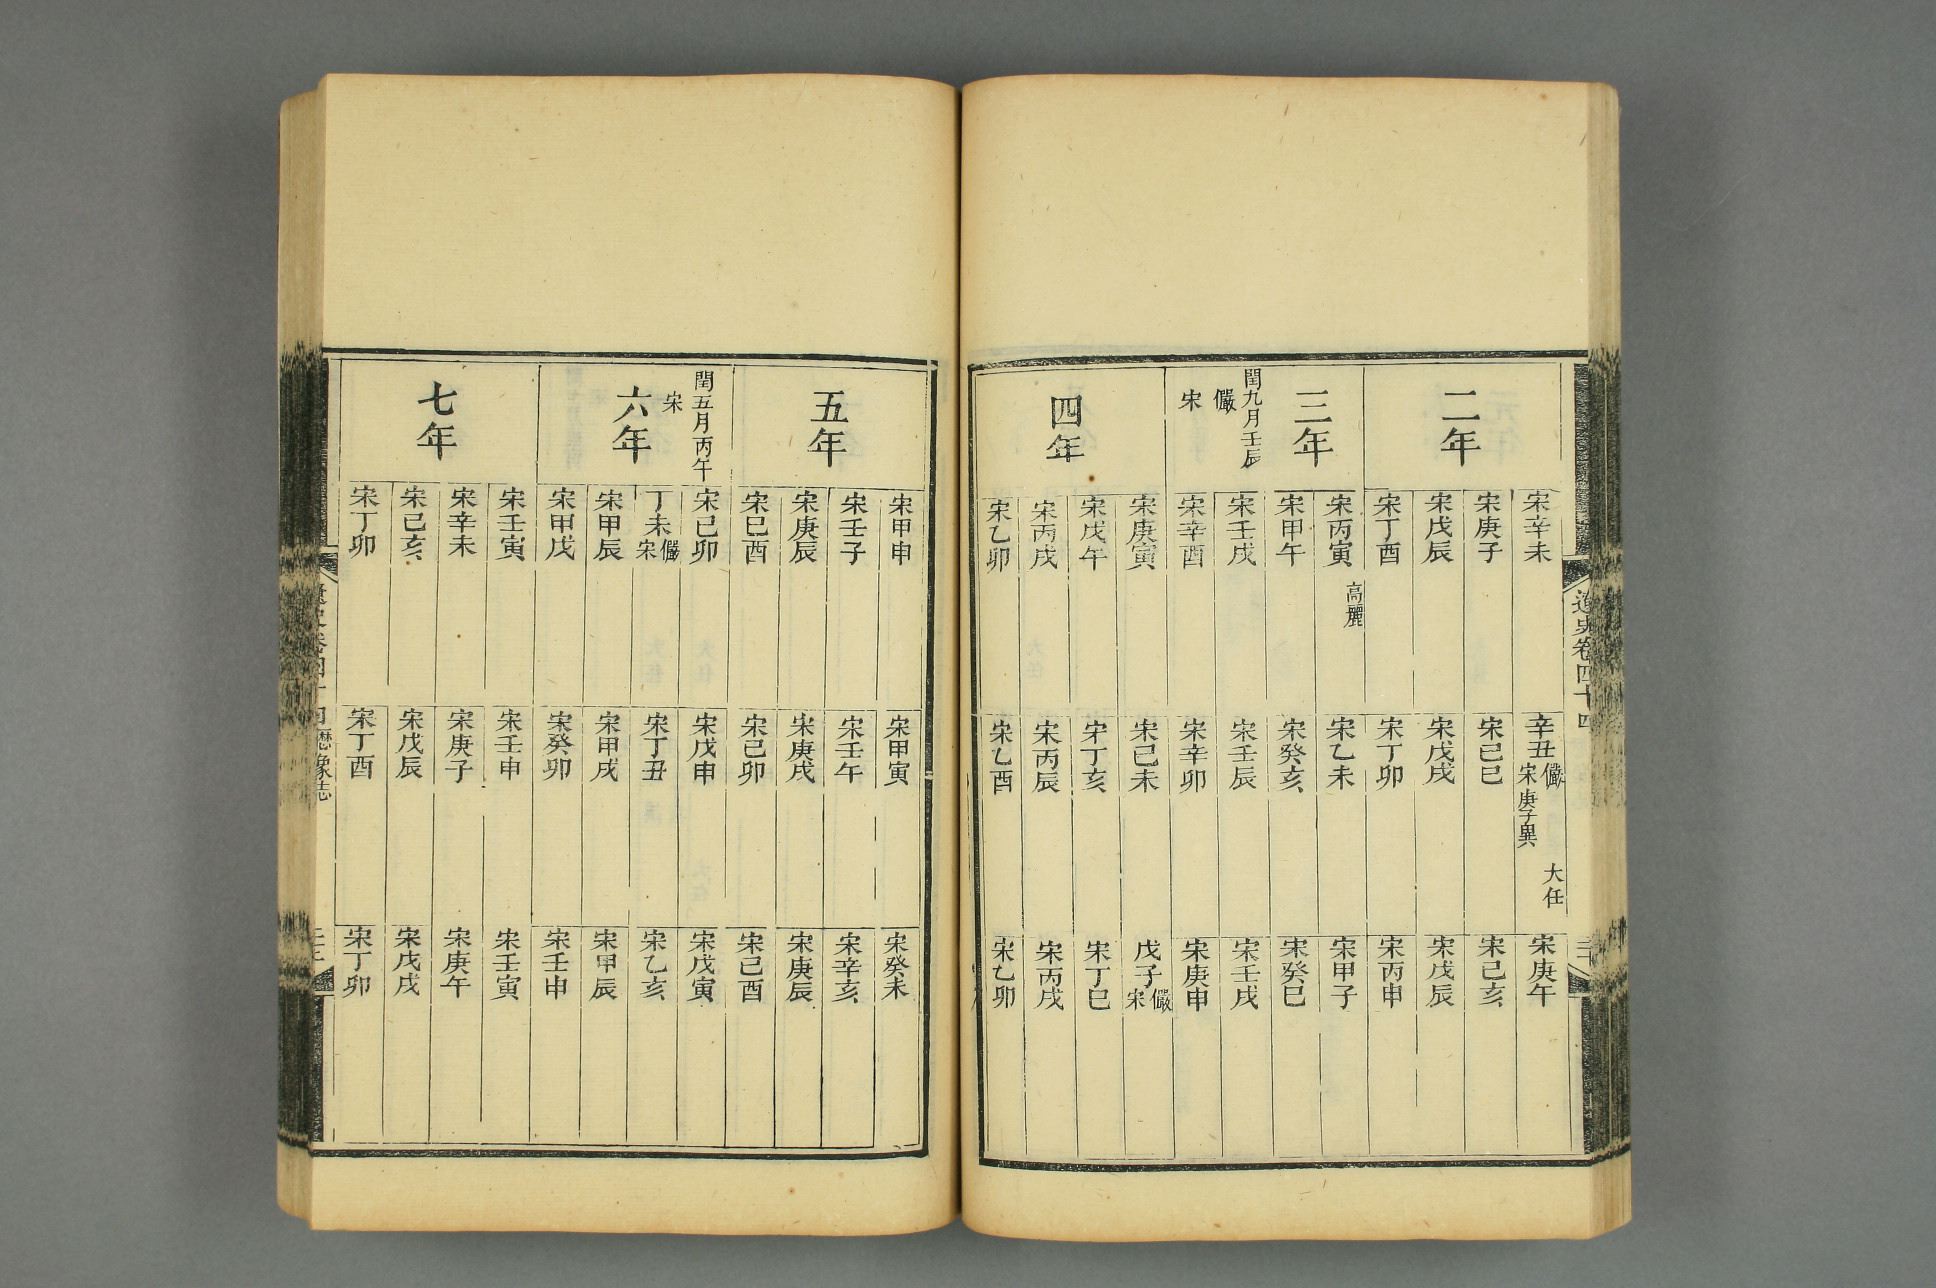 遼史卷四十四
二年
宋辛未 辛丑儼宋庚子異 大任 宋庚午
宋庚子 宋己巳 宋己亥
宋戊辰 宋戊戌 宋戊辰
宋丁酉 宋丁卯 宋丙申
三年
閏九月壬辰
儼
宋
宋丙寅 高麗 宋乙未 宋甲子
宋甲午 宋癸亥 宋癸巳
宋壬戌 宋壬辰 宋壬戌
宋辛酉 宋辛卯 宋庚申
四年
宋庚寅 宋己未 戊子儼宋
宋戊午 宋丁亥 宋丁巳
宋丙戌 宋丙辰 宋丙戌
宋乙卯 宋乙酉 宋乙卯
五年
宋甲申 宋甲寅 宋癸未
宋壬子 宋壬午 宋辛亥
宋庚辰 宋庚戌 宋庚辰
宋巳酉 宋己卯 宋己酉
閏五月丙午
宋
六年
宋己卯 宋戊申 宋戊寅
丁未儼宋 宋丁丑 宋乙亥
宋甲辰 宋甲戌 宋甲辰
宋甲戌 宋癸卯 宋壬申
七年
宋壬寅 宋壬申 宋壬寅
宋辛未 宋庚子 宋庚午
宋己亥 宋戊辰 宋戊戌
宋丁卯 宋丁酉 宋丁卯